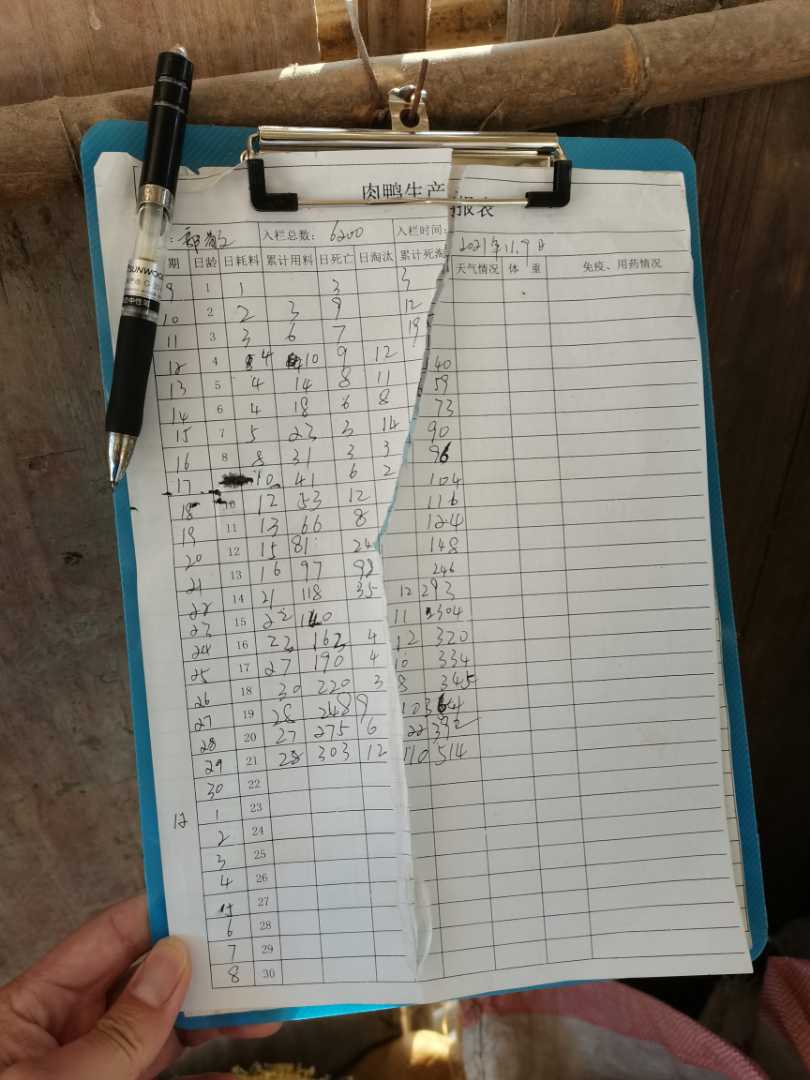 肉鸭生产 报表
入栏总数: 6200 入栏时间: 2021年11.9日
期 日龄 日耗料 累计用料 日死亡 日淘汰 累计死淘 天气情况 体 重 免疫、用药情况
9 1 1 3 3
10 2 2 3 9 12
11 3 3 6 7 19
12 4 4 10 9 12 40
13 5 4 14 8 11 59
14 6 4 18 6 8 73
15 7 5 23 3 14 90
16 8 8 31 3 3 96
17 10 41 6 2 104
18 10 12 53 12 116
19 11 13 66 8 124
20 12 15 81 24 148
21 13 16 97 98 246
22 14 21 118 35 12 293
23 15 22 140 11 304
24 16 23 163 4 12 320
25 17 27 190 4 10 334
26 18 30 220 3 8 345
27 19 28 248 9 10 364
28 20 27 275 6 22 392
29 21 28 303 12 110 514
30 22
12 1 23
2 24
3 25
4 26
27
6 28
7 29
8 30